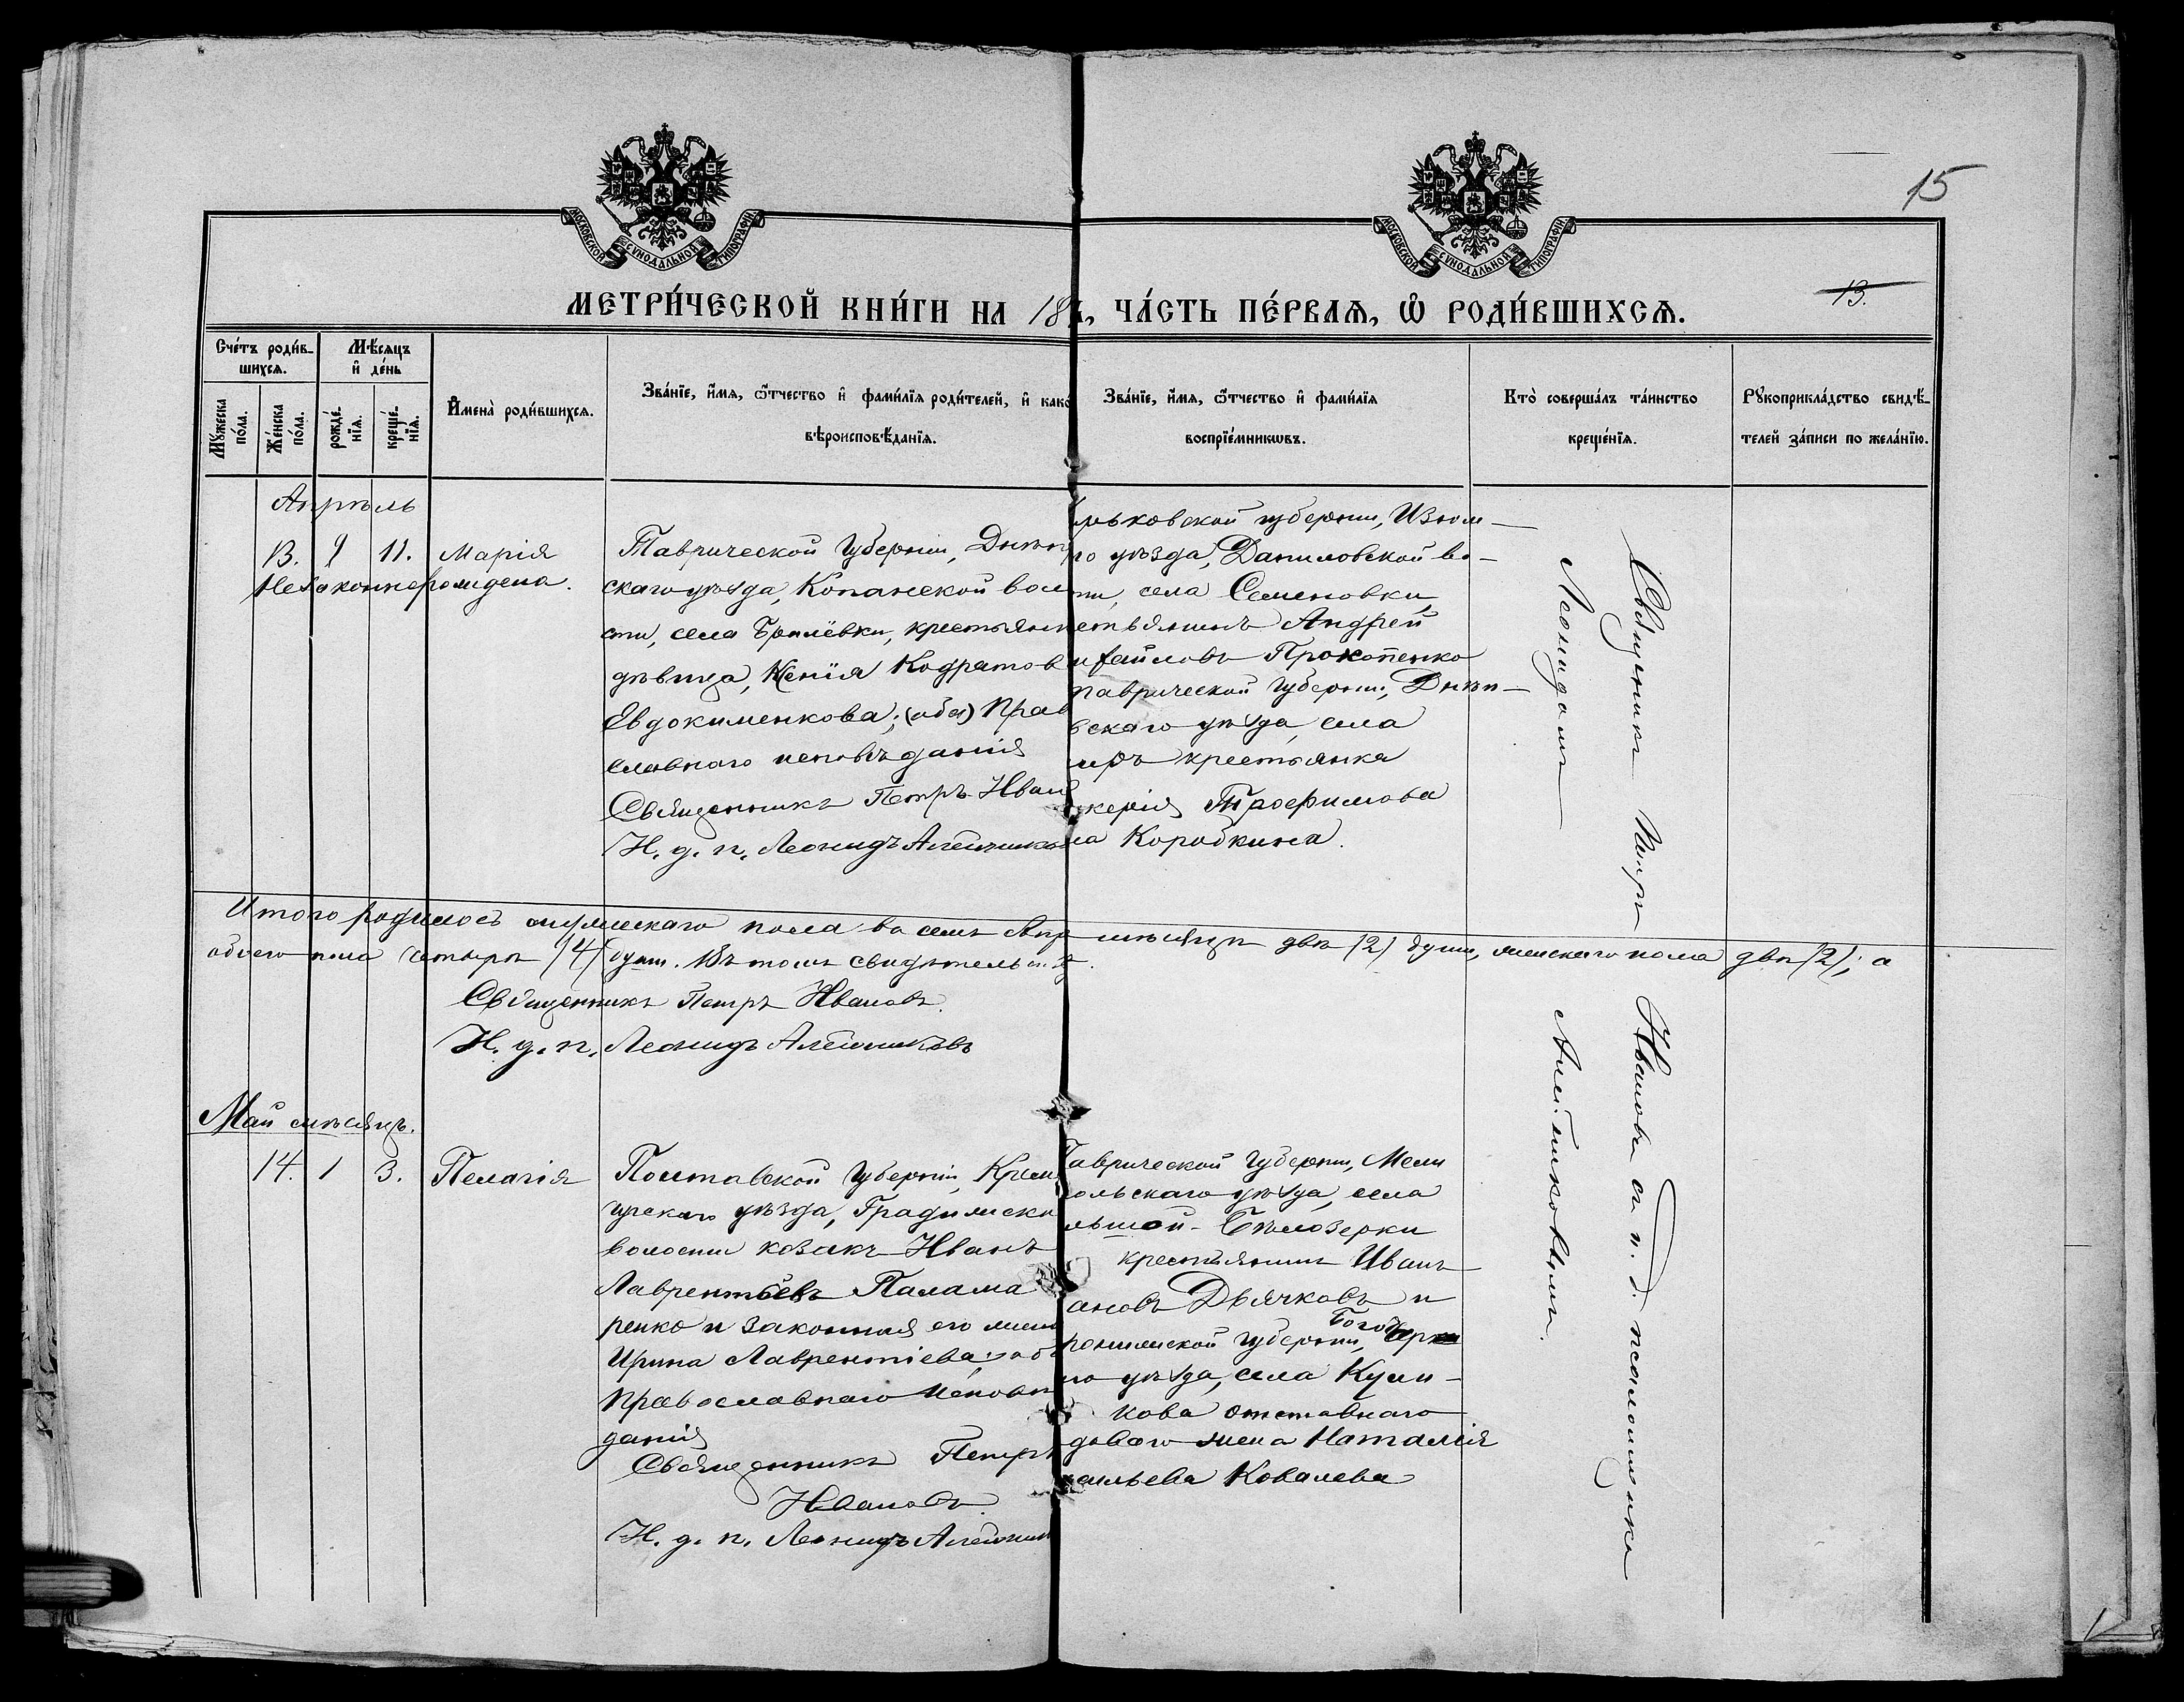 15
13.
МОСКОВСКОЙ СѴНОДАЛЬНОЙ ТИПОГРАФІИ
МОСКОВСКОЙ СѴНОДАЛЬНОЙ ТИПОГРАФІИ
МЕТРИ́ЧЕСКОЙ КНИ́ГИ НА 18 , ЧА́СТЬ ПЕ́РВАѦ, Ѽ РОДИ́ВШИХСѦ.
Сче́тъ роди́в-
шихсѧ.
Мѣ́сѧцъ
и҆ де́нь
Мꙋ́жеска
по́ла.
Же́нска
по́ла.
рожде́-
нїѧ.
креще́-
нїѧ.
И҆мена̀ роди́вшихсѧ.
Зва́нїе, и҆́мѧ, ѻ҆́тчество и҆ фамилїѧ роди́телей, и҆ како
вѣроисповѣ́данїѧ.
Зва́нїе, и҆́мѧ, ѻ҆́тчество и҆ фами́лїѧ
воспрїе́мникѡвъ.
Кто̀ соверша́лъ та́инство
креще́нїѧ.
Рꙋкоприкла́дство свидѣ́-
телей за́писи по жела́нїю.
Апрѣль
13. 9 11. Марія
Незаконнорождена.
Таврической Губерніи, Днѣп
скаго уѣзда, Копанской воло
сти, села Брилёвки, крестьянс
дѣвица, Ксенія Кодратов
Евдокименкова; (оба) Прав
славнаго исповѣданія
Священникъ Петръ Иван
И. д. п. Леонидъ Алейников
рьковской губерніи, Изюм-
го уѣзда, Даниловской во-
ти, села Семеновки
стьянинъ Андрей
ифаиловъ Прокопенко
Таврической Губерніи, Днѣп-
вскаго уѣзда, села
иръ крестьянка
керія Трофимова
на Коробкина.
Итого родилось мужескаго пола въ семъ Апр мѣсяцѣ двѣ (2) души, женскаго пола двѣ (2); а
обоего пола четыре (4) души. Въ томъ свидѣтельст.
Священникъ Петръ Ивановъ.
И. д. п. Леонидъ Алейниковъ
Май мѣсяцъ.
14. 1 3. Пелагія
Полтавской Губерніи, Крем
чугскаго уѣзда, Градижско
волости козакъ Иванъ
Лаврентьевъ Палама
ренко и законная его жен
Ирина Лаврентіева; об
Православнаго исповѣ
данія
Священникъ Петръ
Ивановъ
И. д. п. Леонидъ Алейник
Таврической Губерніи, Мели
ольскаго уѣзда, села
льшой-Бѣлозерки
крестьянинъ Иванъ
ановъ Дьячковъ и
Богоч
ронежской Губерніи,
го уѣзда, села Кули-
кова отставнаго
доваго жена Наталія
сильева Ковалева
Священникъ Петръ Ивановъ съ и. д. псаломщика
Леонидомъ Алейниковымъ.